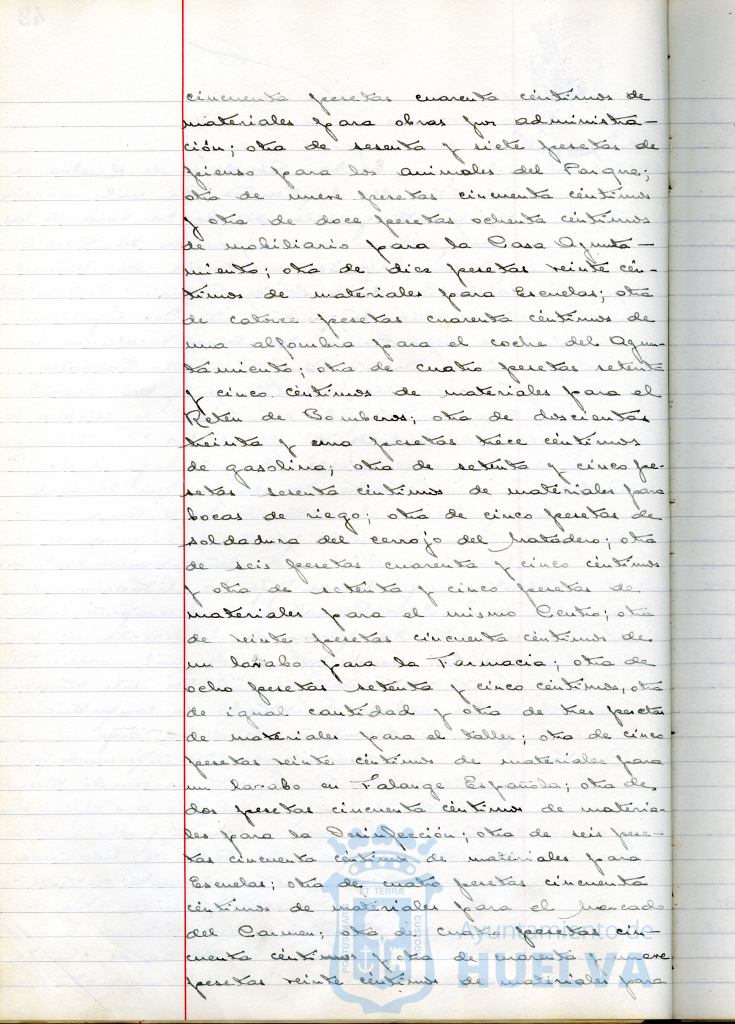 cincuenta pesetas cuarenta céntimos de
materiales para obras por administra-
ción; otra de sesenta y siete pesetas de
pienso para los animales del Parque;
otra de nueve pesetas cincuenta céntimos
y otra de doce pesetas ochenta céntimos
de mobiliario para la Casa Ayunta-
miento; otra de diez pesetas veinte cén-
timos de materiales para Escuelas; otra
de catorce pesetas cuarenta céntimos de
una alfombra para el coche del Ayun-
tamiento; otra de cuatro pesetas setenta
y cinco céntimos de materiales para el
Retén de Bomberos; otra de doscientas
treinta y una pesetas trece céntimos
de gasolina; otra de setenta y cinco pe-
setas sesenta céntimos de materiales para
bocas de riego; otra de cinco pesetas de
soldadura del cerrojo del Matadero; otra
de seis pesetas cuarenta y cinco céntimos
y otra de setenta y cinco pesetas de
materiales para el mismo Centro; otra
de veinte pesetas cincuenta céntimos de
un lavabo para la Farmacia; otra de
ocho pesetas setenta y cinco céntimos, otra
de igual cantidad y otra de tres pesetas
de materiales para el taller; otra de cinco
pesetas veinte céntimos de materiales para
un lavabo en Falange Española; otra de
dos pesetas cincuenta céntimos de materia-
les para la Desinfección; otra de seis pese-
tas cincuenta céntimos de materiales para
Escuelas; otra de cuatro pesetas cincuenta
céntimos de materiales para el Mercado
del Carmen; otra de cuatro pesetas cin-
cuenta céntimos y otra de cuarenta y nueve
pesetas veinte céntimos de materiales para
PORTUS MARIS ET TERRAE CUSTODIA
Ayuntamiento de
HUELVA